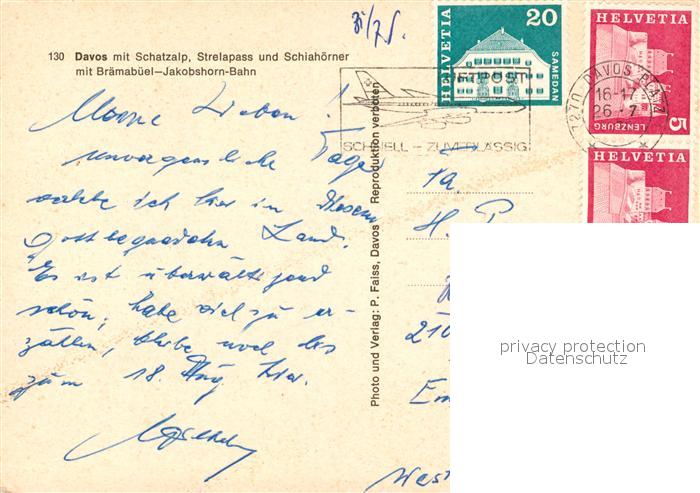 31/7 75.
130 Davos mit Schatzalp, Strelapass und Schiahörner
mit Brämabüel—Jakobshorn-Bahn
Meine Lieben!
unvergessliche Tage
erlebe ich hier in diesem
gottbegnadeten Land.
Es ist überwältigend
schön, habe viel zu er-
zählen, bleibe noch bis
zum 18. Aug. hier.
Photo und Verlag: P. Faiss, Davos Reproduktion verboten
HELVETIA
20
SAMEDAN
LUFTPOST
SCHNELL - ZUVERLÄSSIG
HELVETIA
5
LENZBURG
7270 DAVOS PLATZ
16-17
26. 7.
HELVETIA
Fa.
H. P
210
Em
West
privacy protection
Datenschutz